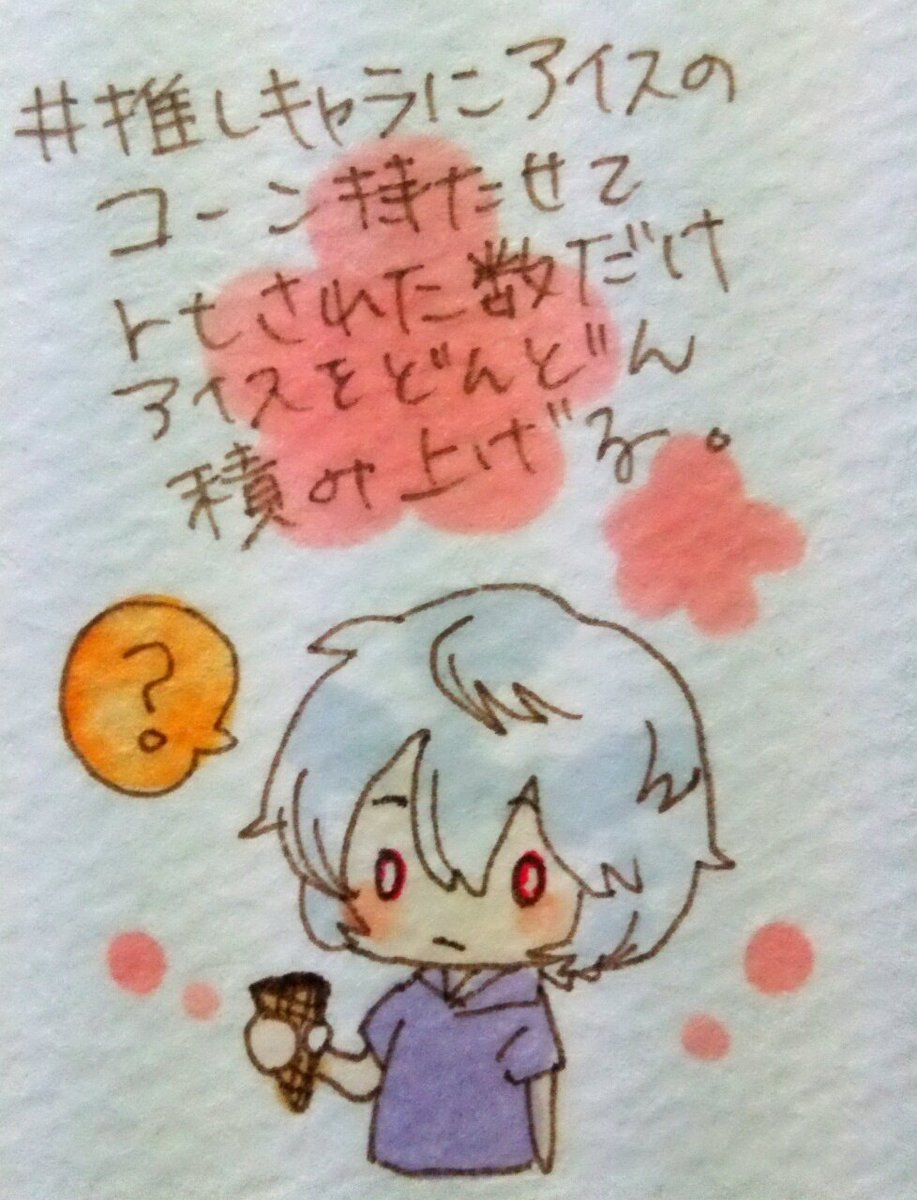 #推しキャラにアイスの
コーン持たせて
トモされた数だけ
アイスをどんどん
積み上げる。
?